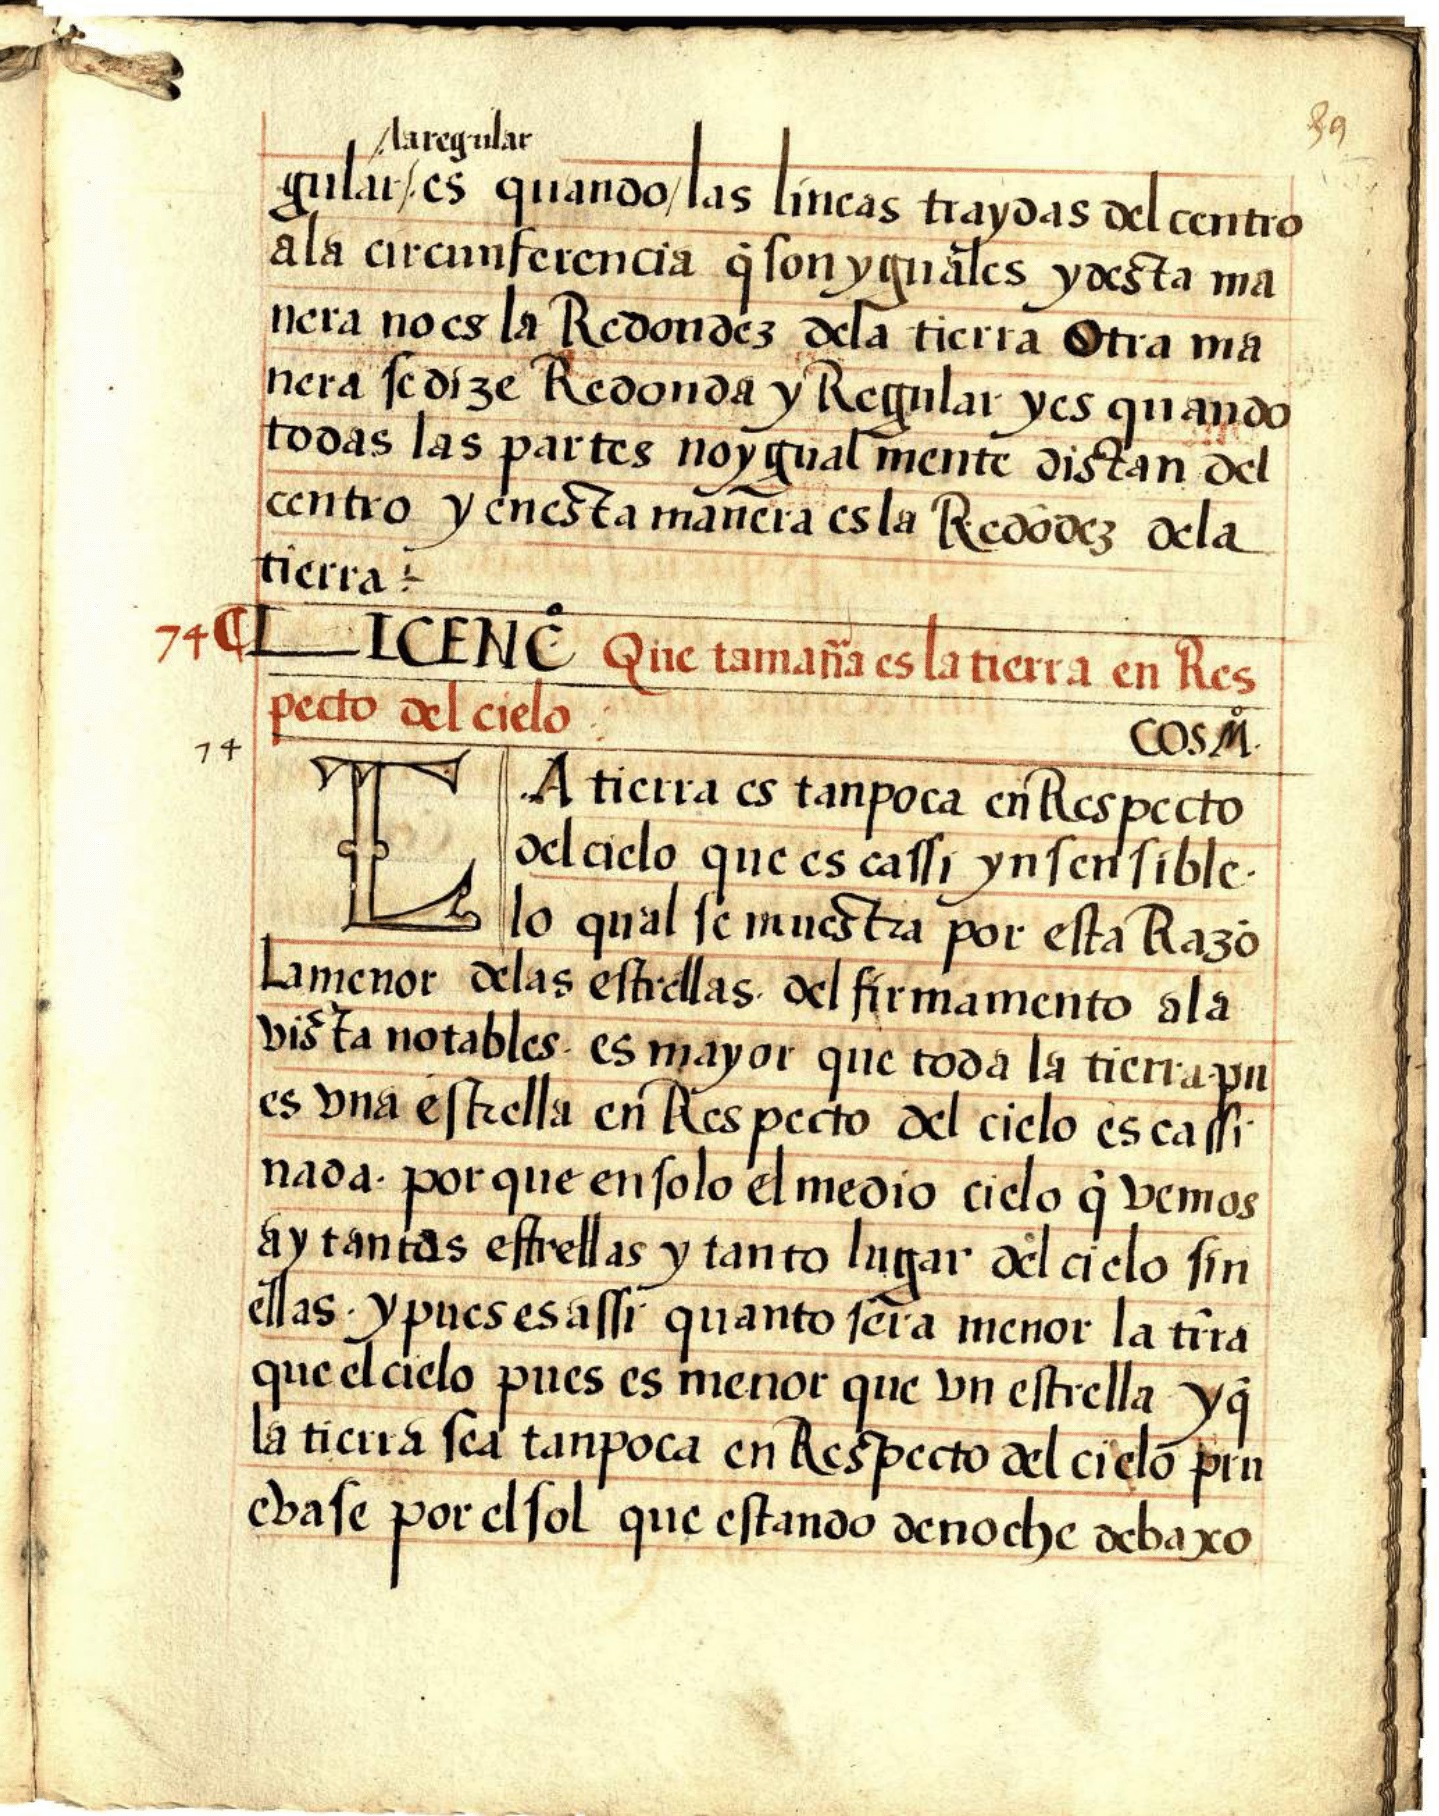 39
/la regular
gular/. es quando/ las lineas traydas del centro
ala circunferencia q̃ son yguales y desta ma
nera no es la Redondez dela tierra Otra ma
nera se dize Redonda y Regular y es quando
todas las partes no ygual mente distan del
centro y en esta manera es la Redõdez dela
tierra :-
74 ¶ LICENC̊ Que tamaña es la tierra en Res
pecto del cielo :
COSM̊.
74
L.A tierra es tan poca en Respecto
del cielo que es cassi ynsensible.
lo qual se muestra por esta Razõ
La menor delas estrellas. del firmamento ala
vista notables. es mayor que toda la tierra. pu
es vna estrella en Respecto del cielo es cassi
nada. por que en solo el medio cielo q̃ vemos
ay tantas estrellas y tanto lugar del cielo sin
ellas. y pues es assi quanto sera menor la tr̃ra
que el cielo pues es menor que vn estrella y q̃
la tierra sea tan poca en Respecto del cielo pru
evase por el sol que estando de noche debaxo